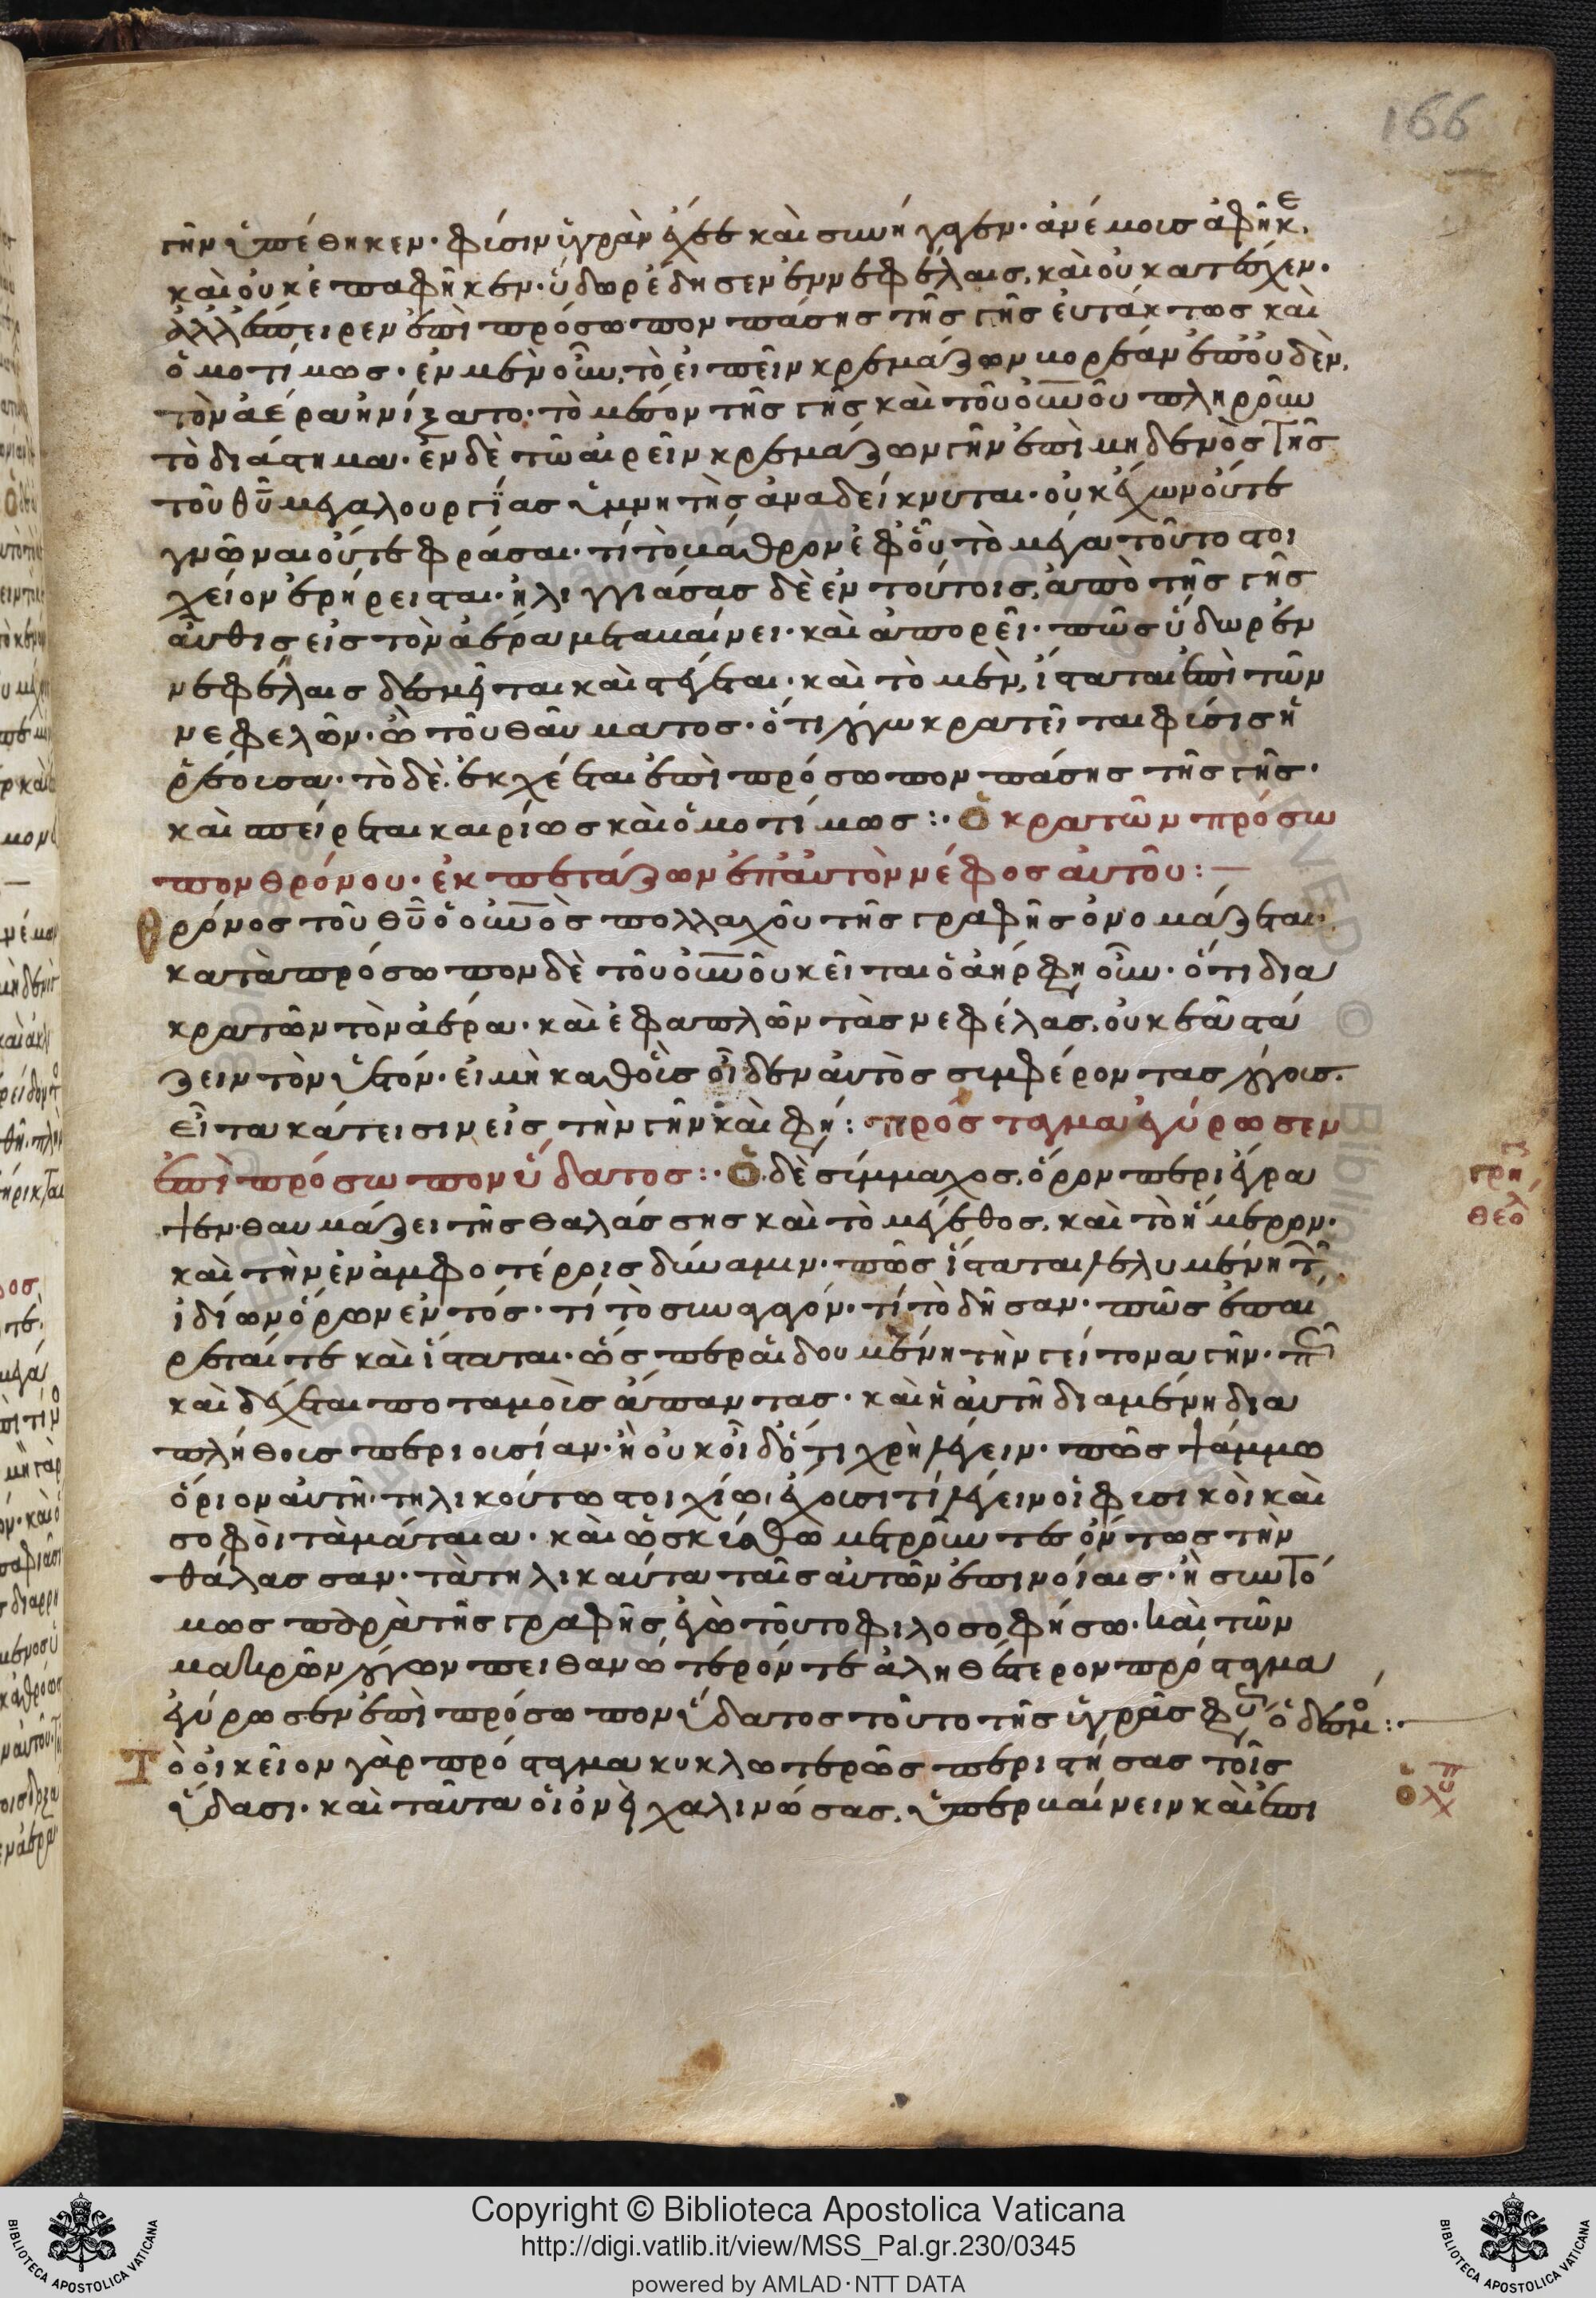 166
γῆν ὑπέθηκεν· φύσιν ὑγρὰν ἔχεε καὶ συνήγαγεν· ἀνέμοις ἀφῆκε,
καὶ οὐκ ἐπαφῆκεν· ὕδωρ ἔδησεν ἐν νεφέλαις, καὶ οὐ κατέσχεν·
ἀλλ' ἔσπειρεν ἐπὶ πρόσωπον πάσης τῆς γῆς εὐτάκτως καὶ
ὁμοτίμως· ἐν μὲν οὖν, τὸ εἰπεῖν κρεμάζων βορέαν ἐπ' οὐδὲν,
τὸν ἀέρα ἠνίξατο· τὸ μέσον τῆς γῆς καὶ τοῦ οὐνοῦ πληροῦν
τὸ διάστημα· ἐν δὲ τῶ αἱρεῖν κρεμάζων γῆν ἐπὶ μηδενὸς τῆς
τοῦ θυ μεγαλουργίας ὑμνητὴς ἀναδείκνυται· οὐκ ἔχων οὔτε
γνῶναι οὔτε φράσαι· τί τὸ βάθρον ἐφ' οὗ τὸ μέγα τοῦτο στοι
χεῖον ἐρήρεισται· ἠλιγγιάσας δὲ ἐν τούτοις, ἀπὸ τῆς γῆς
αὖθις εἰς τὸν ἀέρα μεταβαίνει· καὶ ἀπορεῖ· πῶς ὕδωρ ἐν
νεφέλαις δεσμεῖται καὶ στέγεται· καὶ τὸ μὲν, ἵσταται ἐπὶ τῶν
νεφελῶν· ὢ τοῦ θαύματος· ὅτι λόγω κρατεῖται φύσις ἡ
ῥέουσα· τὸ δὲ. ἐκχέεται ἐπὶ πρόσωπον πάσης τῆς γῆς·
καὶ σπείρεται καιρίως καὶ ὁμοτίμως:· Ὁ κρατῶν πρόσω
πον θρόνου· ἐκπετάζων ἐπ' αὐτὸν νέφος αὐτοῦ:—
Θρόνος τοῦ θυ ὁ οὐνὸς πολλαχοῦ τῆς γραφῆς ὀνομάζεται·
κατὰ πρόσωπον δὲ τοῦ οὐνοῦ κεῖται ὁ ἀήρ φη οὖν· ὅτι δια
κρατῶν τὸν ἀέρα· καὶ ἐφαπλῶν τὰς νεφέλας, οὐκ ἐᾶ στά
ζειν τὸν ὑετόν· εἰ μὴ καθ' οὓς οἶδεν αὐτὸς συμφέροντας λόγους.
εἶτα κάτεισιν εἰς τὴν γῆν καὶ φη: πρόσταγμα ἐγύρωσεν
ἐπὶ πρόσωπον ὕδατος:· Ὁ δὲ σύμμαχος, ὅρον περιέγρα
ψεν· θαυμάζει τῆς θαλάσσης καὶ τὸ μέγεθος, καὶ τὸ ἥμερον·
καὶ τὴν ἐν ἀμφοτέροις δύναμιν· πῶς ἵσταται λελυμένη τῶν
ἰδίων ὅρων ἐντός· τί τὸ συναγαγόν· τί τὸ δῆσαν· πῶς ἐπαί
ρεταί τε καὶ ἵσταται· ὥσπερ αἰδουμένη τὴν γείτονα γῆν· πῶς
καὶ δέχεται ποταμοὺς ἅπαντας· καὶ ἡ αὐτὴ διαμένη δια
πλήθους περιουσίαν· ἢ οὐκ οἶδ' ὅτι χρὴ λέγειν· πῶς ψάμμω
ὅριον αὐτῆ· τηλικούτω στοιχίω, ἔχουσί τι λέγειν οἱ φυσικοὶ καὶ
σοφοὶ τὰ μάταια· καὶ ὡς κυάθω μετροῦντες ὄντως τὴν
θάλασσαν· τὰ τηλικαῦτα ταῖς αὐτῶν ἐπινοίαις· ἢ συντό
μως παρὰ τῆς γραφῆς ἐγὼ τοῦτο φιλοσοφήσω· καὶ τῶν
μακρῶν λόγων πειθανώτερόν τε ἀληθέστερον πρόσταγμα
ἐγύρωσεν ἐπὶ πρόσωπον ὕδατος τοῦτο τῆς ὑγρᾶς φύσεως ὁ δεσμό:·
Τὸ οἰκεῖον γὰρ πρόσταγμα κυκλωτερῶς περιστήσας τοῖς
ὕδασι· καὶ ταῦτα οἱονεὶ χαλινώσας, ὑπερβαίνειν καὶ ἐπι
γρη
θεολ